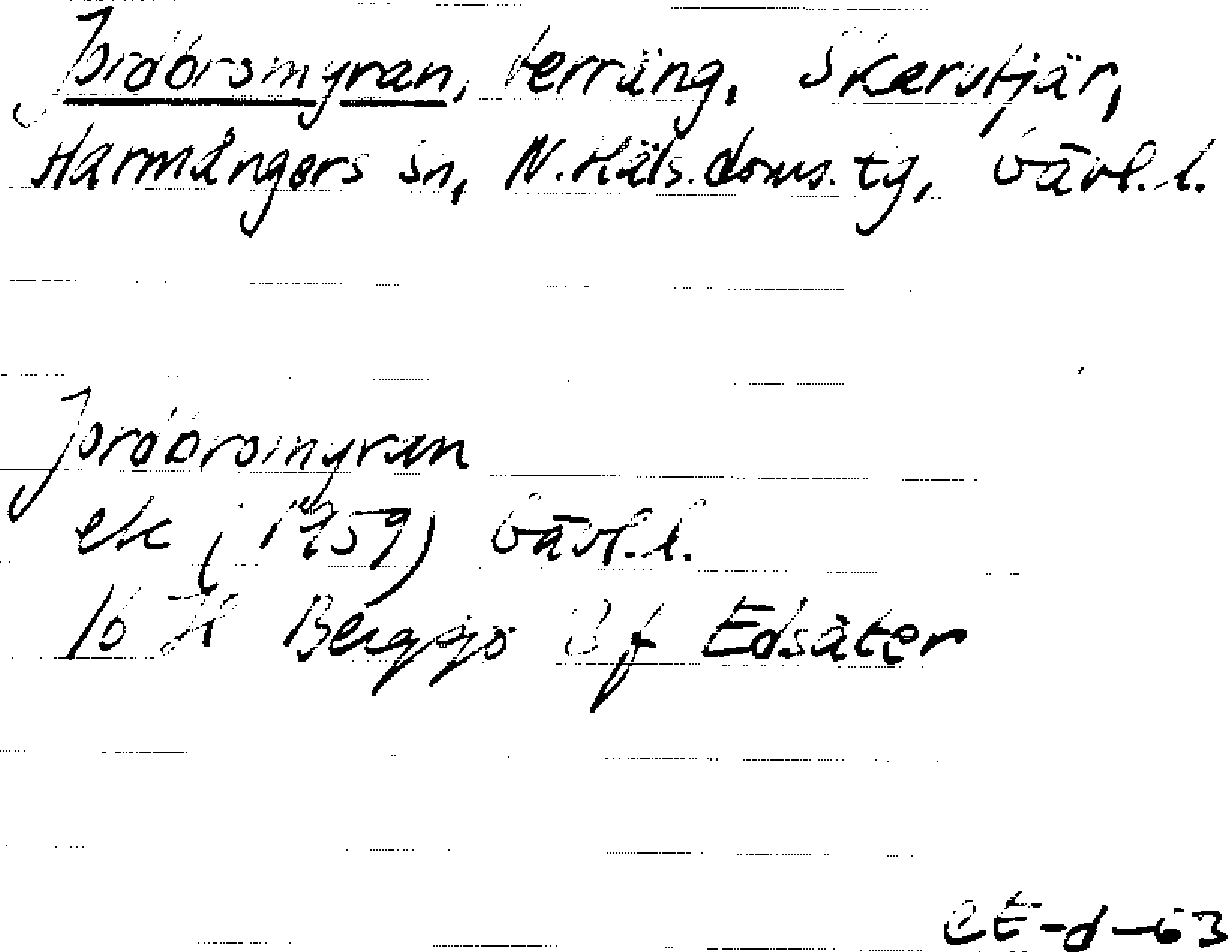 Jordbromyran, terräng, Skarvtjär,
Harmångers sn, N.Häls.doms.tg, Gävl.l.
Jordbromyran
ek (1959) Gävl.l.
16 H Bergsjö 3 f Edsäter